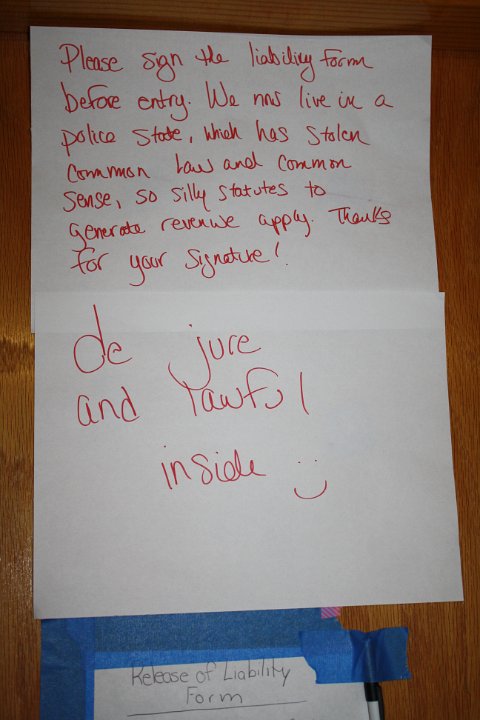 Please sign the liability form
before entry. We nns live in a
police state, which has stolen
common law and common
sense, so silly statutes to
generate revenue apply. Thanks
for your signature!
de jure
and lawful
inside :)
Release of Liability
Form